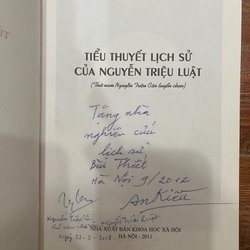 TIỂU THUYẾT LỊCH SỬ
CỦA NGUYỄN TRIỆU LUẬT
(Thứ nam Nguyễn Triệu Căn tuyển chọn)
Tặng nhà
nghiên cứu
lịch sử
Bùi Thiết
Hà Nội 9/2012
An Kiều
NHÀ XUẤT BẢN KHOA HỌC XÃ HỘI
HÀ NỘI - 2011